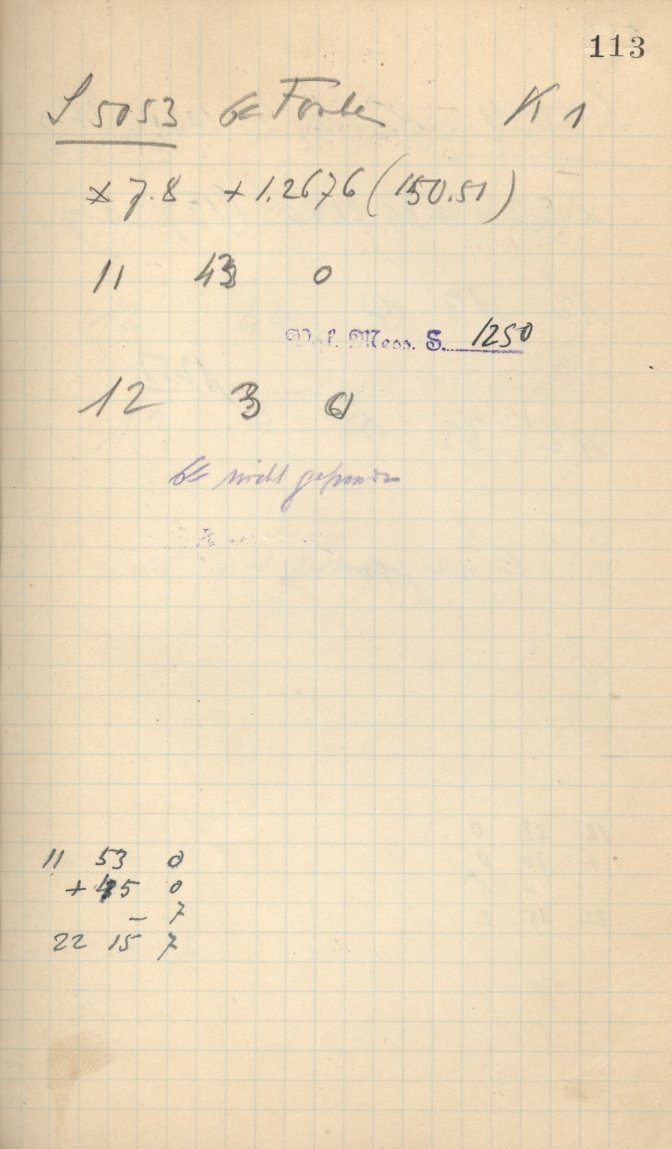 113
S 5053 K 1
x 7.8 + 1.2676 (150.51)
11 43 0
Mess. S. 1250
12 3 0
nicht gefunden
11 53 0
+ 45 0
- 7
22 15 7